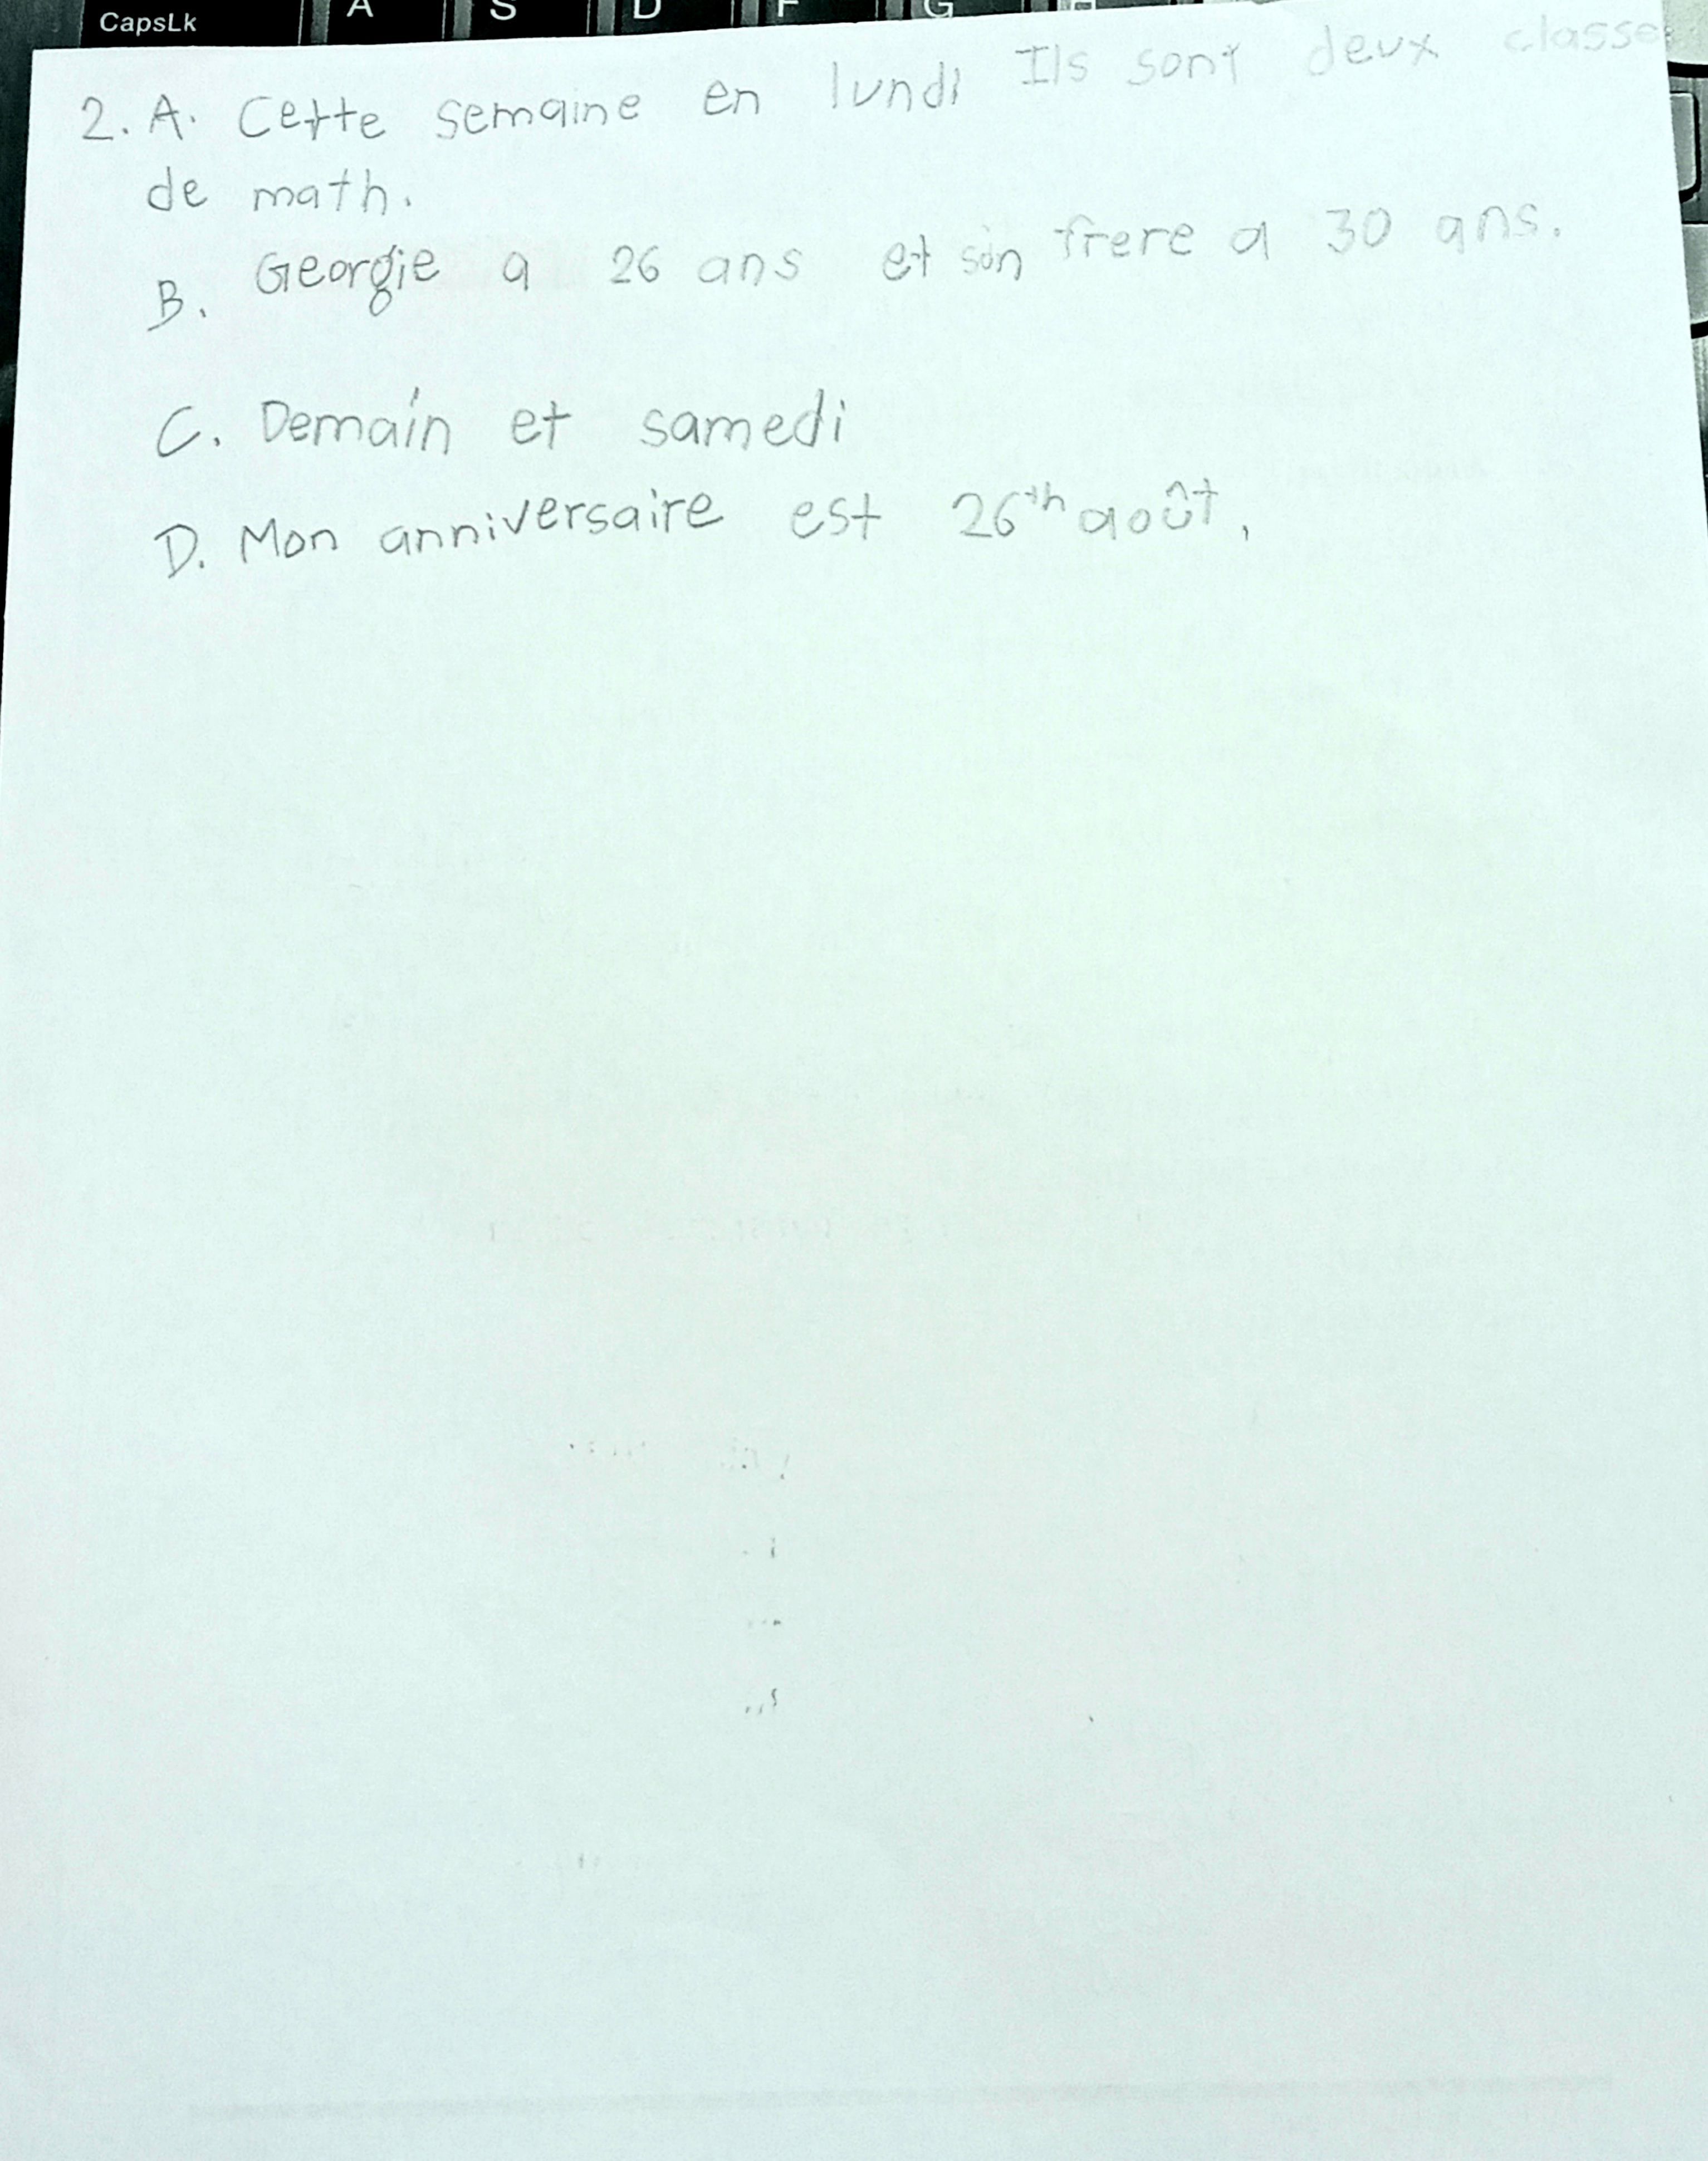 CapsLk A S D F G H
2. A. Cette semaine en lundi Ils sont deux classe
de math.
B. Georgie a 26 ans et son frere a 30 ans.
C. Demain et samedi
D. Mon anniversaire est 26th août.